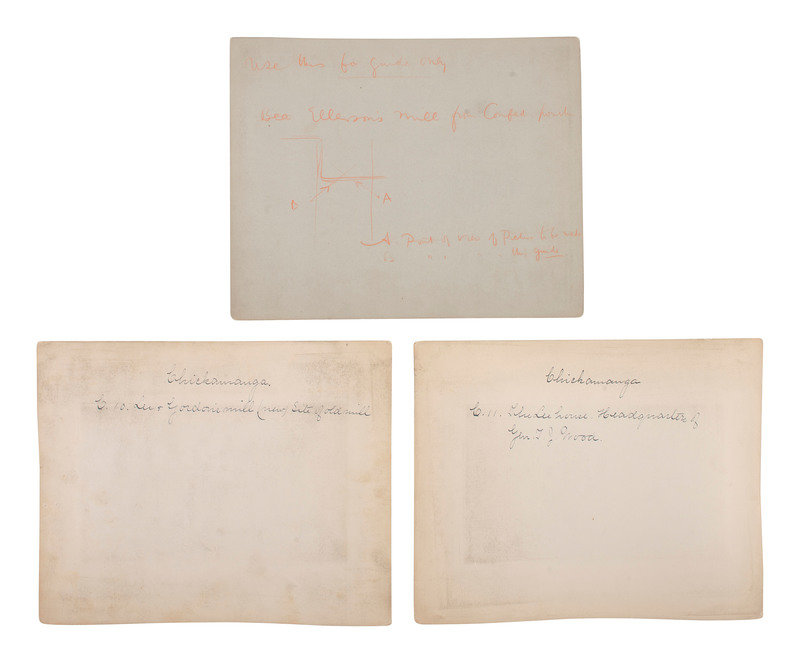 Use this for guide only
Ellersons mill from Confed.
B
A
A. Point of view of
this guide
Chickamauga.
C. 10. Lee & Gordons mill (new) Site of old mill
Chickamauga
C. 11. The Lee house Headquarters of
Gen. T J Wood.